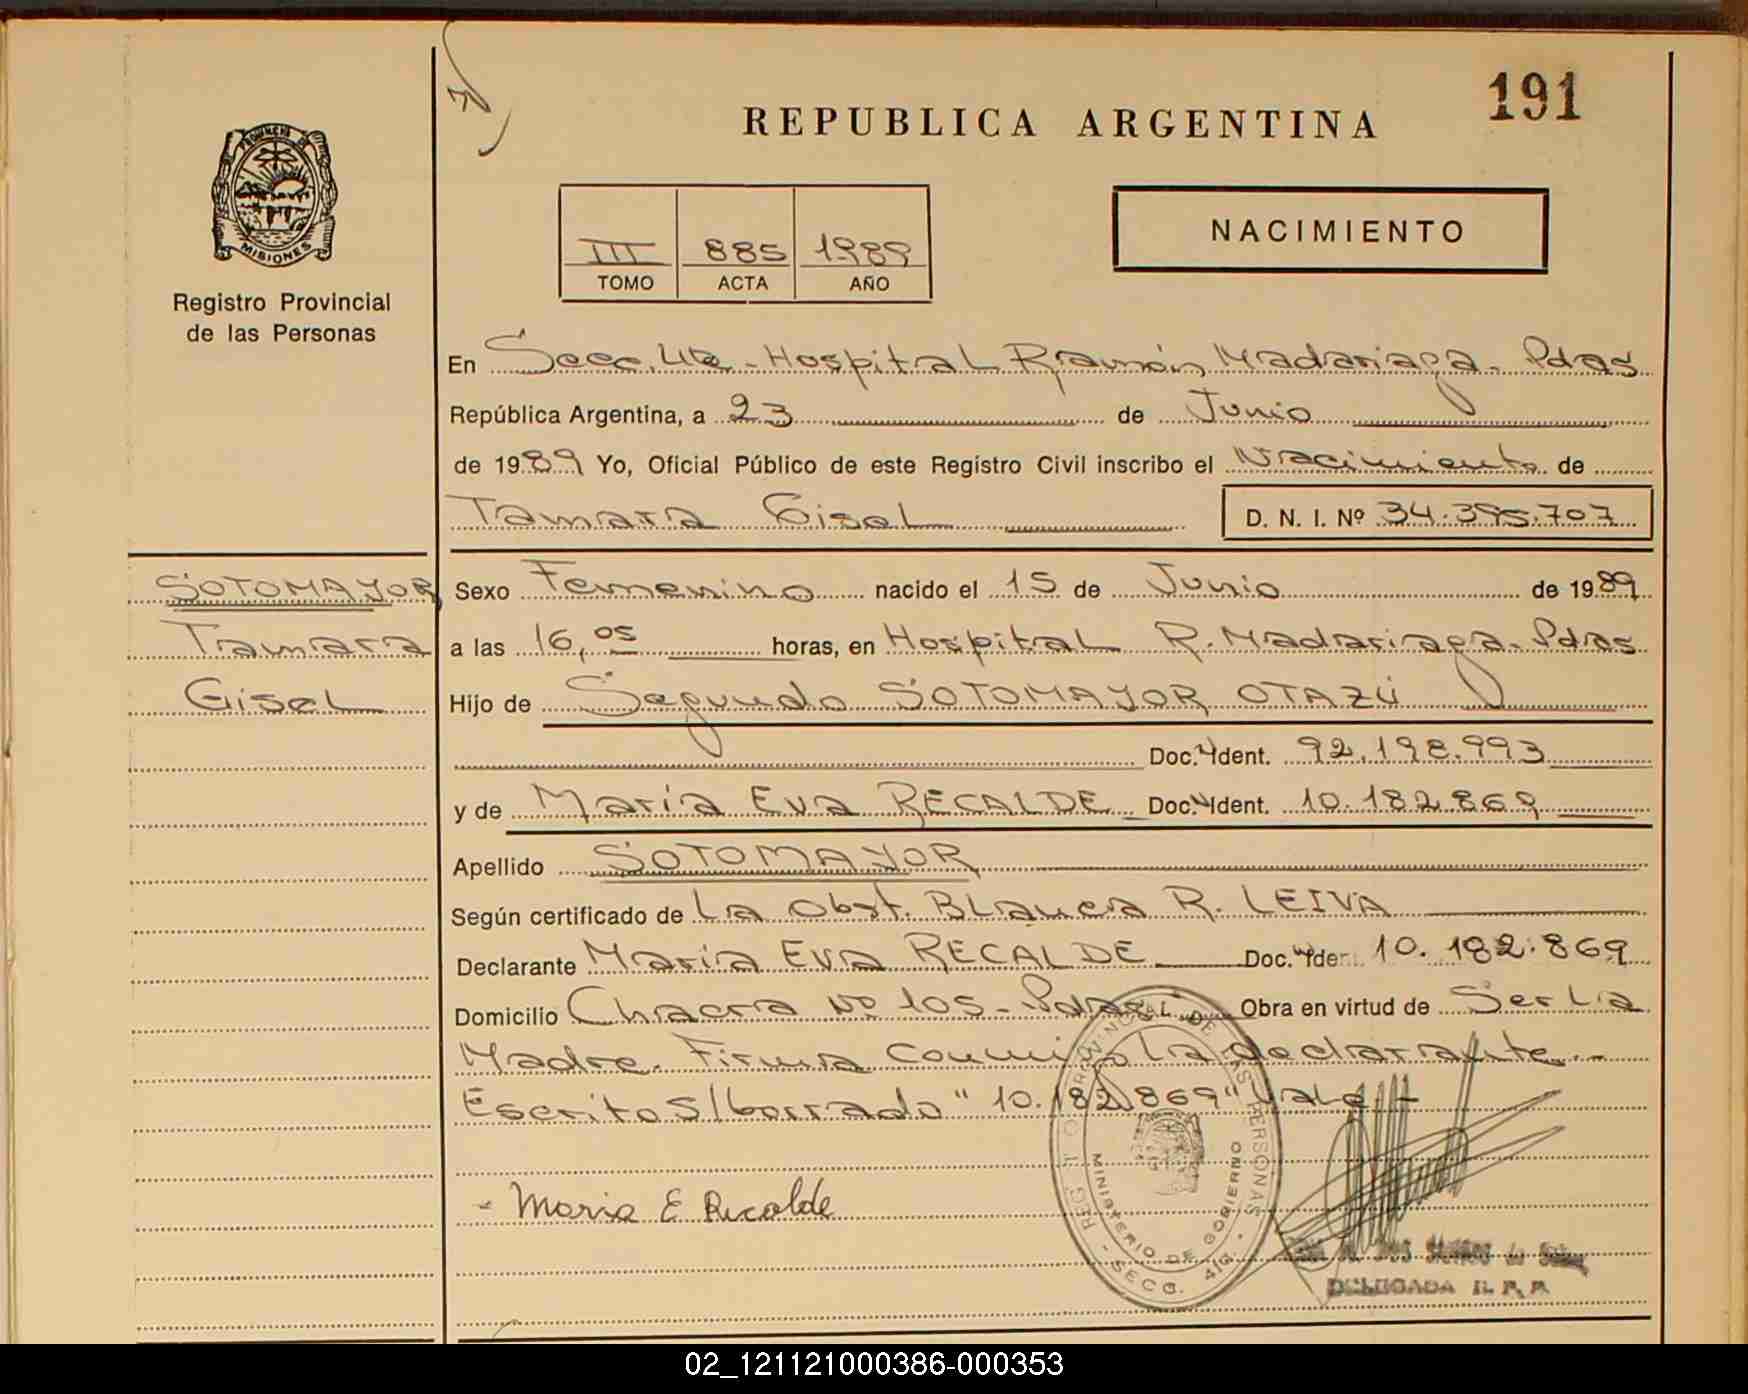 191
REPUBLICA ARGENTINA
PROVINCIA DE
MISIONES
Registro Provincial
de las Personas
III 885 1989
TOMO ACTA AÑO
NACIMIENTO
En Secc. 4ta - Hospital Ramón Madariaga. Pdas
República Argentina, a 23 de Junio
de 1989 Yo, Oficial Público de este Registro Civil inscribo el Nacimiento de
Tamara Gisel D. N. I. Nº 34.395.707
SOTOMAYOR
Tamara
Gisel
Sexo Femenino nacido el 15 de Junio de 1989
a las 16,05 horas, en Hospital R. Madariaga. Pdas
Hijo de Segundo SOTOMAYOR OTAZÚ
Doc. Ident. 92.198.993
y de María Eva RECALDE Doc. Ident. 10.182.869
Apellido SOTOMAYOR
Según certificado de La Obst. Blanca R. LEIVA
Declarante María Eva RECALDE Doc. Iden 10.182.869
Domicilio Chacra Nº 105 - Pdas. Obra en virtud de Ser La
Madre. Firma conmigo la declarante.-
Escrito S/borrado "10.182.869" Vale.-
REG. PROVINCIAL DE LAS PERSONAS
MINISTERIO DE GOBIERNO
- SECC. 4ta. -
- Maria E Recalde
DELEGADA R. P. P.
02_121121000386-000353